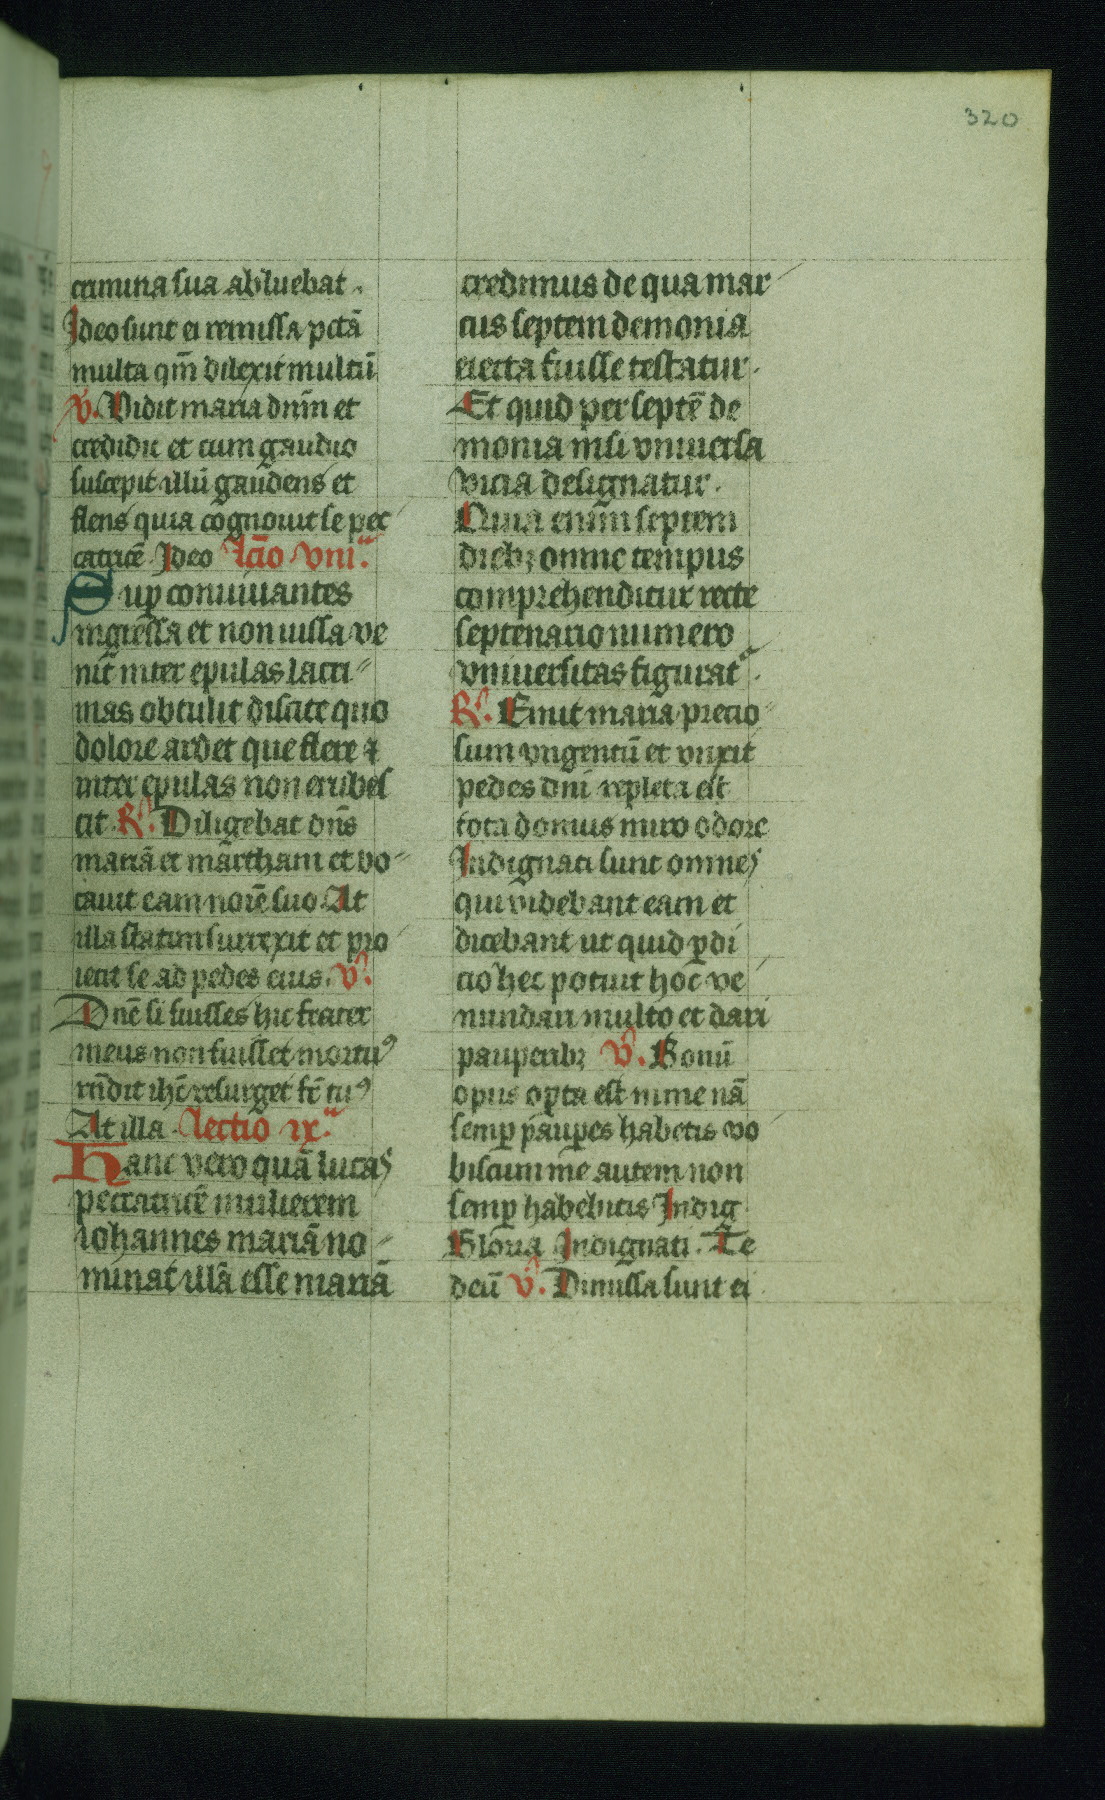 320
crimina sua abluebat.
Ideo sunt ei remissa pctā
multa qm̄ dilexit multū
V. Vidit maria dnm̄ et
credidit et cum gaudio
suscepit illū gaudens et
flens quia cognouit se pec
catricē. Ideo Lc̄io viiiᵃ.
Sup conuiuantes
ingressa et non iussa ve
nit inter epulas lacri-
mas obtulit discite quo
dolore ardet que flere ⁊
inter epulas non erubes
cit. R. Diligebat dn̄s
mariā et martham et vo-
cauit eam noīe suo. At
illa statim surrexit et pro
iecit se ad pedes eius. V.
Dn̄e si fuisses hic frater
meus non fuisset mortuꝰ
rn̄dit ihc̄ resurget fr̄ tuꝰ
At illa. Lectio ixᵃ.
Hanc vero quā lucas
peccatricē mulierem
iohannes mariā no-
minat illā esse mariā
credimus de qua mar
cus septem demonia
eiecta fuisse testatur.
Et quid per septē de
monia nisi vniuersa
vicia designatur.
Quia enim septem
diebꝫ omne tempus
comprehenditur recte
septenario numero
vniuersitas figurat᷑.
R. Emit maria precio
sum vngentū et vnxit
pedes dn̄i repleta est
tota domus miro odore
Indignati sunt omnes
qui videbant eam et
dicebant ut quid ꝑdi
cio hec potuit hoc ve
nundari multo et dari
pauperibꝫ V. Bonū
opus opta est in me nā
semꝑ pauꝑes habetis vo
biscum me autem non
semꝑ habebitis Indig
Gloria Indignati. Te
deū V. Dimissa sunt ei